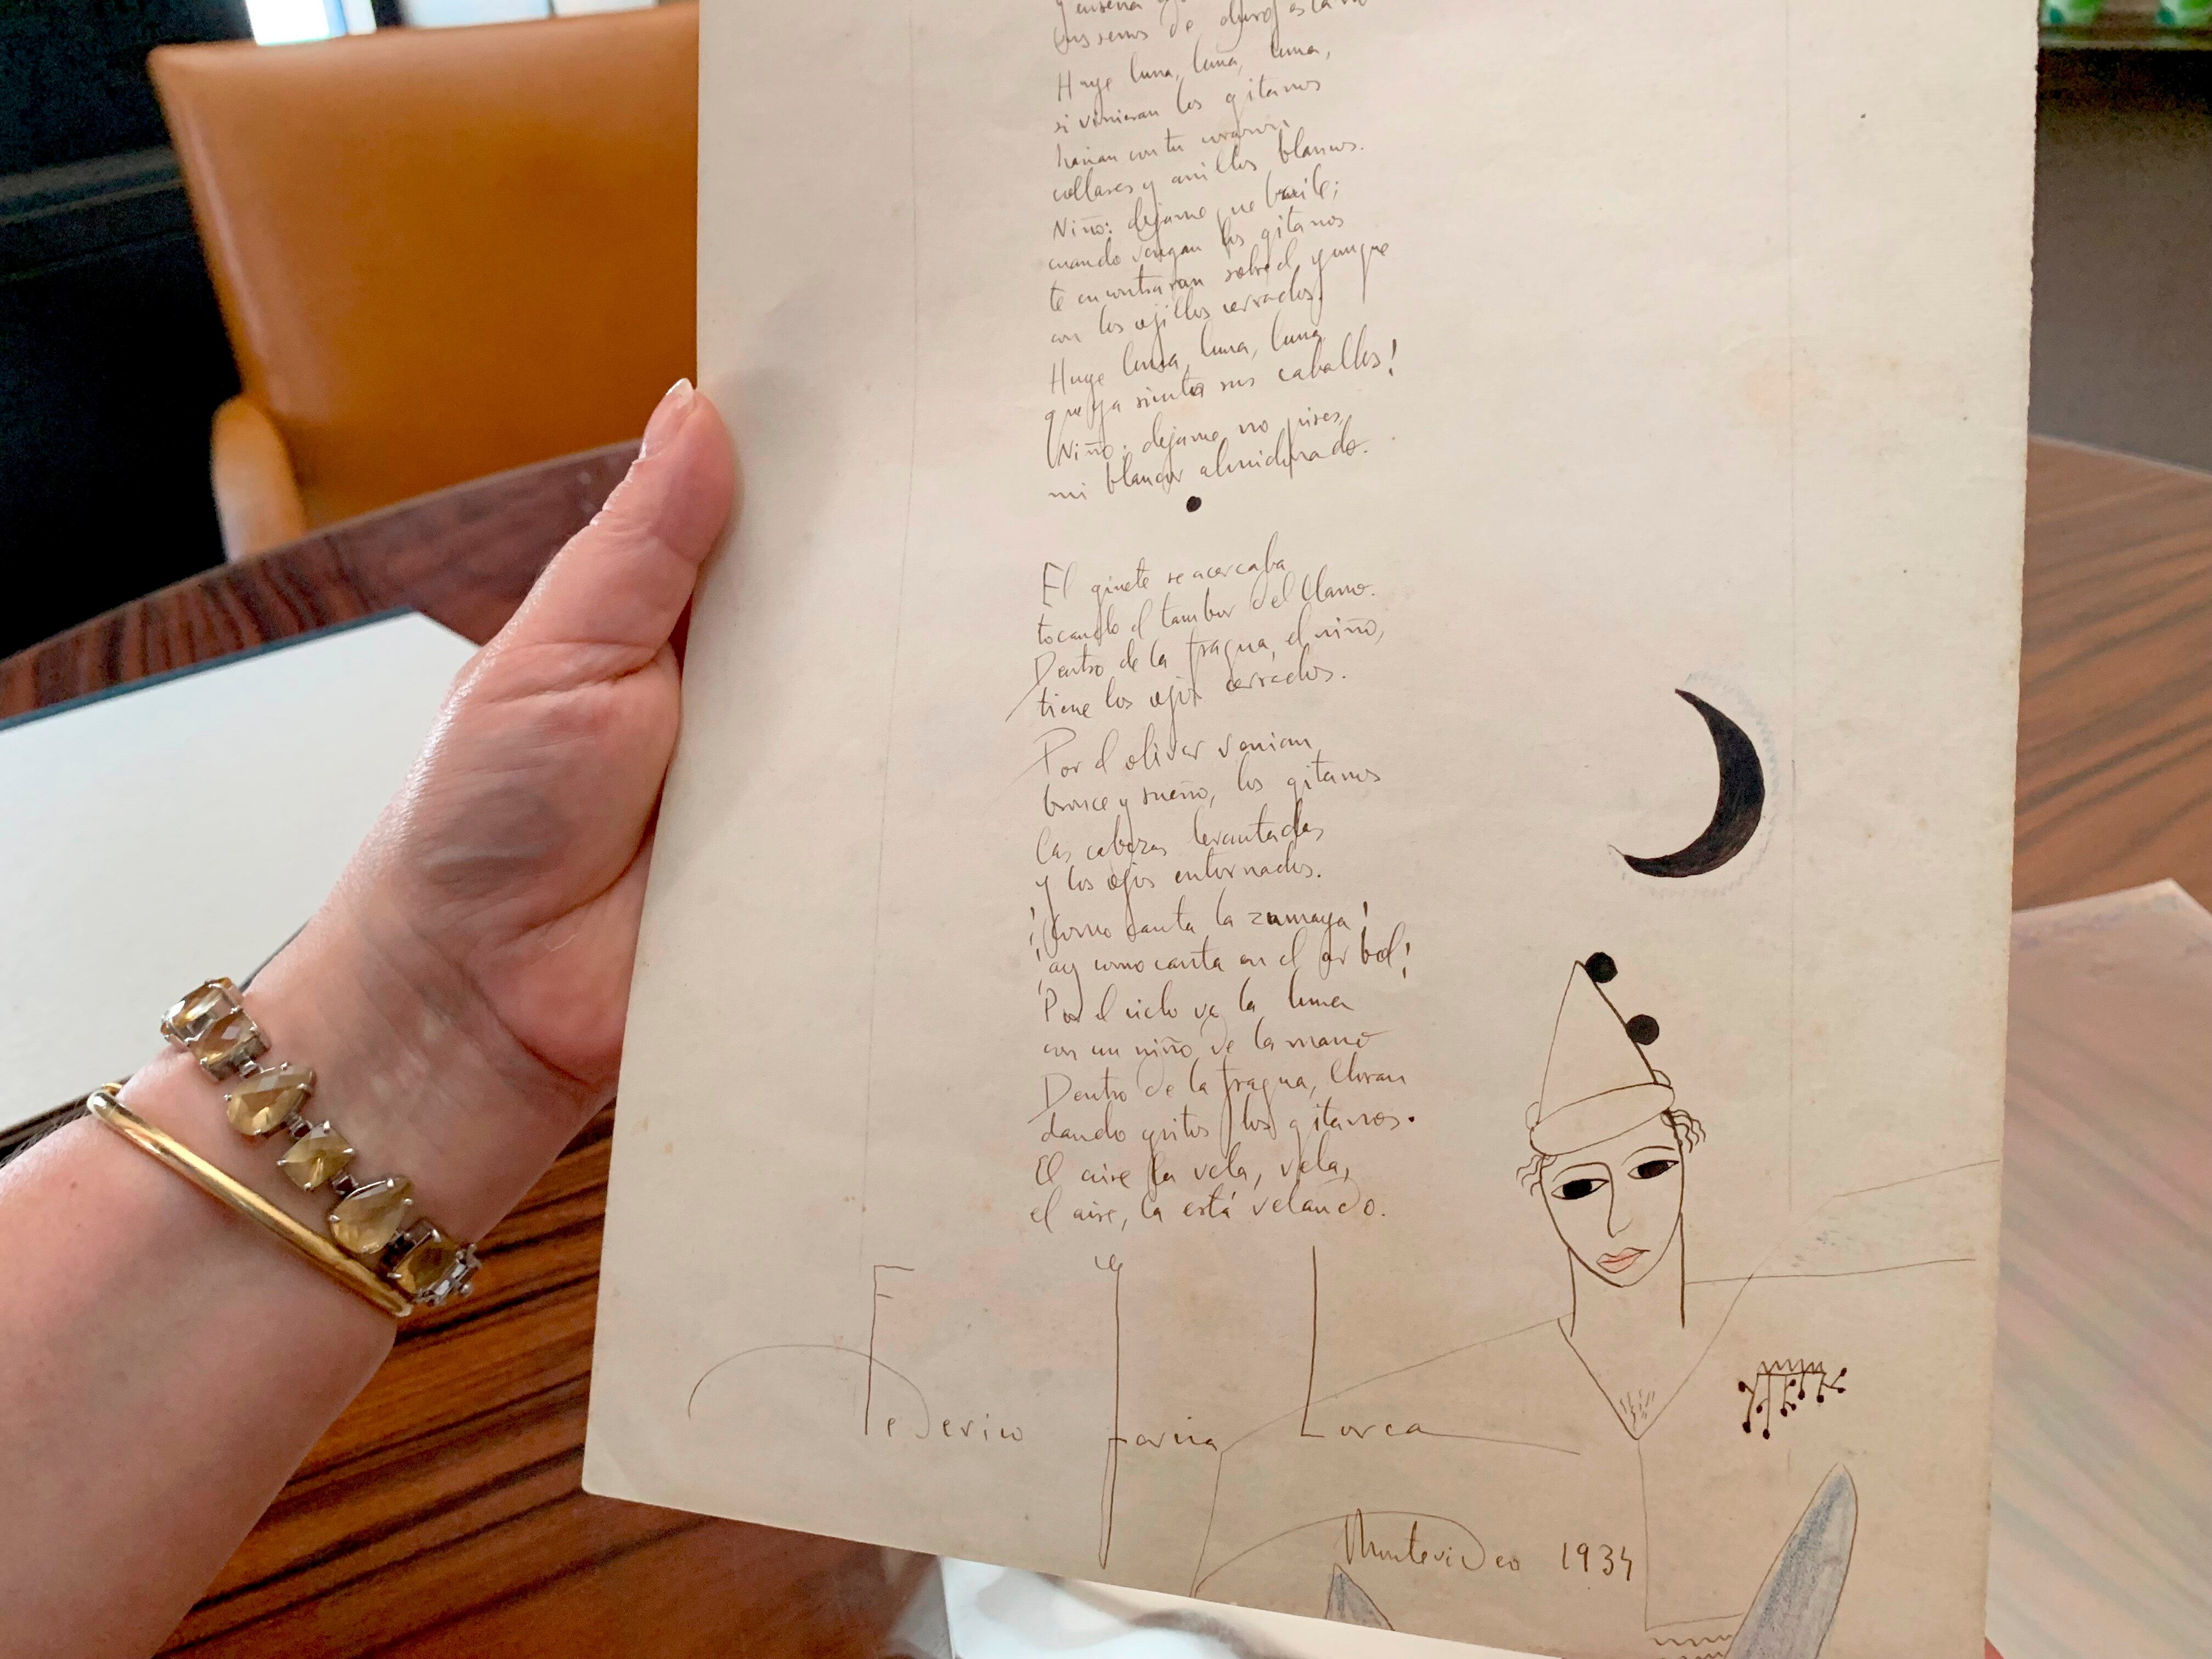 y enseña
sus senos de duro estaño
Huye luna, luna, luna,
si vinieran los gitanos
harian con tu corazon
collares y anillos blancos.
Niño: dejame que baile;
cuando vengan los gitanos
te encontraran sobre el yunque
con los ojillos cerrados.
Huye luna, luna, luna
que ya siento sus caballos!
Niño: dejame, no pises,
mi blancor almidonado.
El ginete se acercaba
tocando el tambor del llano.
Dentro de la fragua, el niño,
tiene los ojos cerrados.
Por el olivar venian,
bronce y sueño, los gitanos
las cabezas levantadas
y los ojos entornados.
¡Como canta la zumaya!
¡ay como canta en el arbol!
Por el cielo va la luna
con un niño de la mano
Dentro de la fragua, lloran
dando gritos los gitanos.
El aire la vela, vela,
el aire, la está velando.
Federico Garcia Lorca
Montevideo 1934